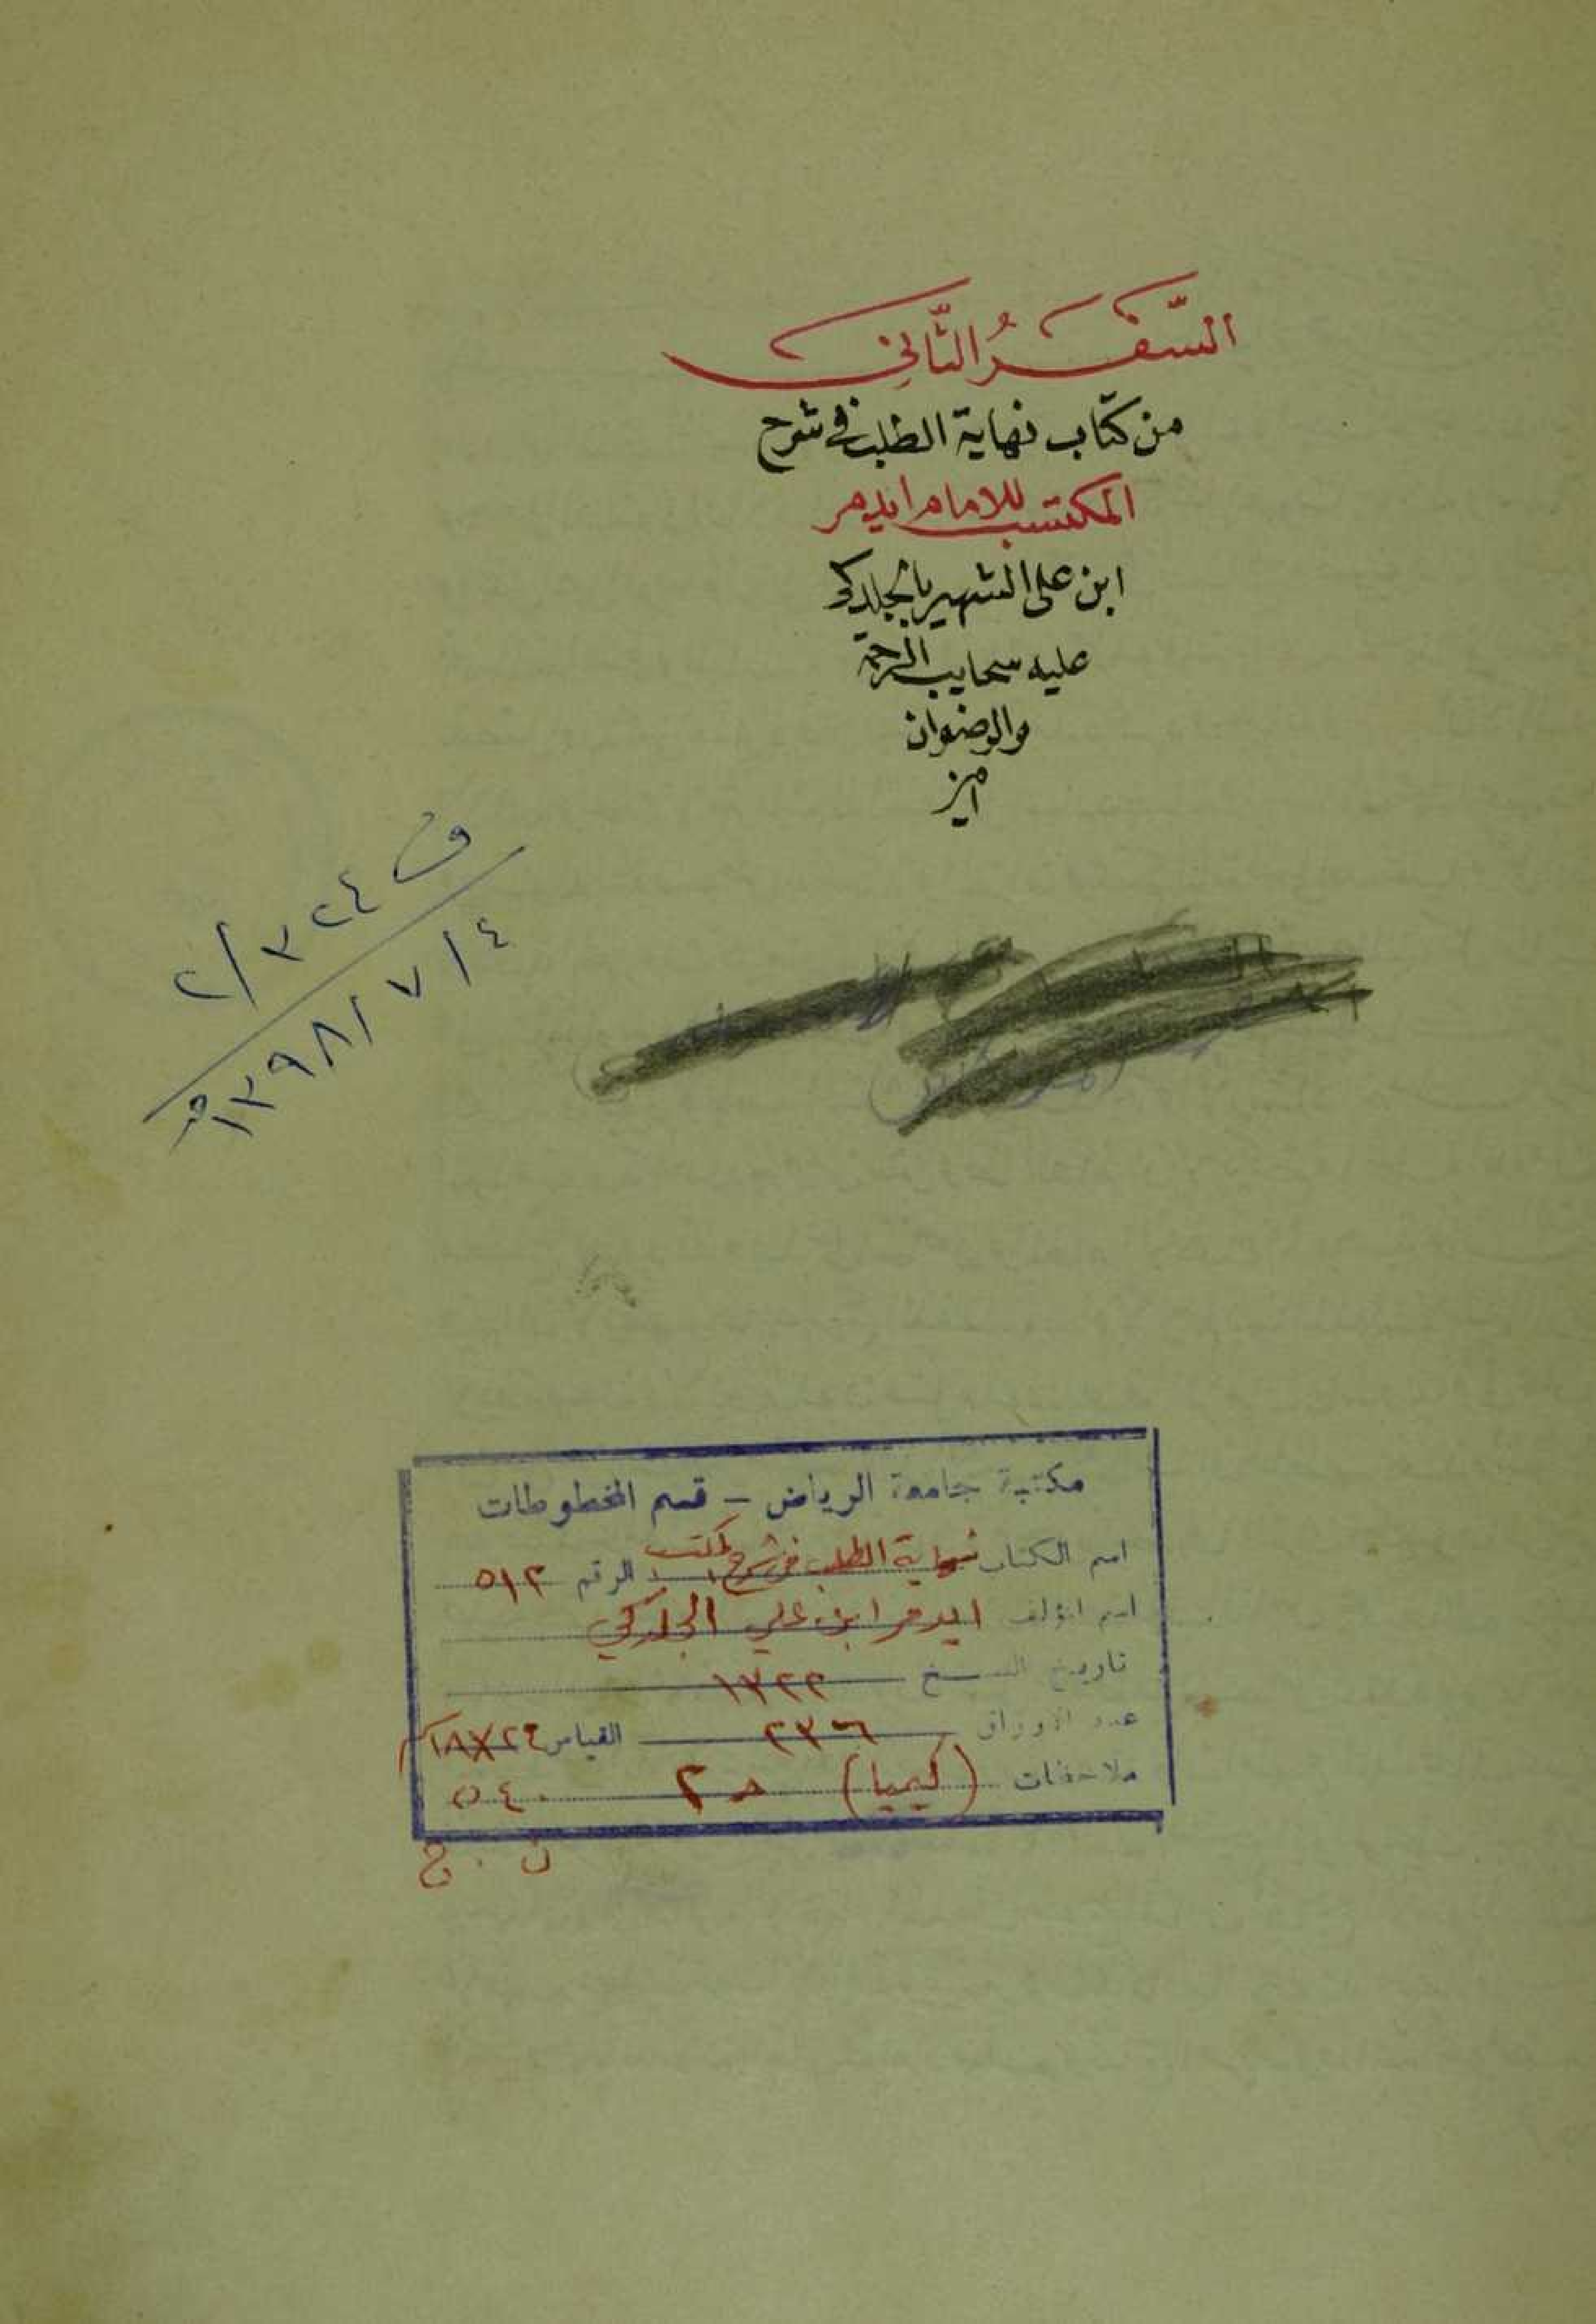 السَّفرُ الثَّاني
من كتاب نهاية الطلب في شرح
المكتسب للامام ايدمر
ابن على الشهير بالجلدكى
عليه سحايب الرحمة
والرضوان
امين
ف ٣٢٤/٢
١٣٩٨/٧/٤ هـ
مكتبة جامعة الرياض – قسم المخطوطات
اسم الكتاب نهاية الطلب في شرح المكتسب الرقم ٥١٢
اسم المؤلف ايدمر ابن علي الجلدكي
تاريخ النسخ ١٣٢٢
عدد الاوراق ٢٣٦ القياس ٢٤×١٨
ملاحظات (كيميا) حـ ٢ ٥٤٠